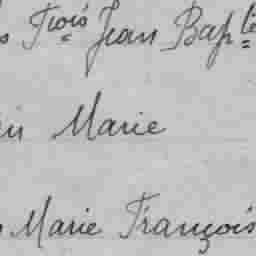 Frois Jean Bapte
Marie
Marie François